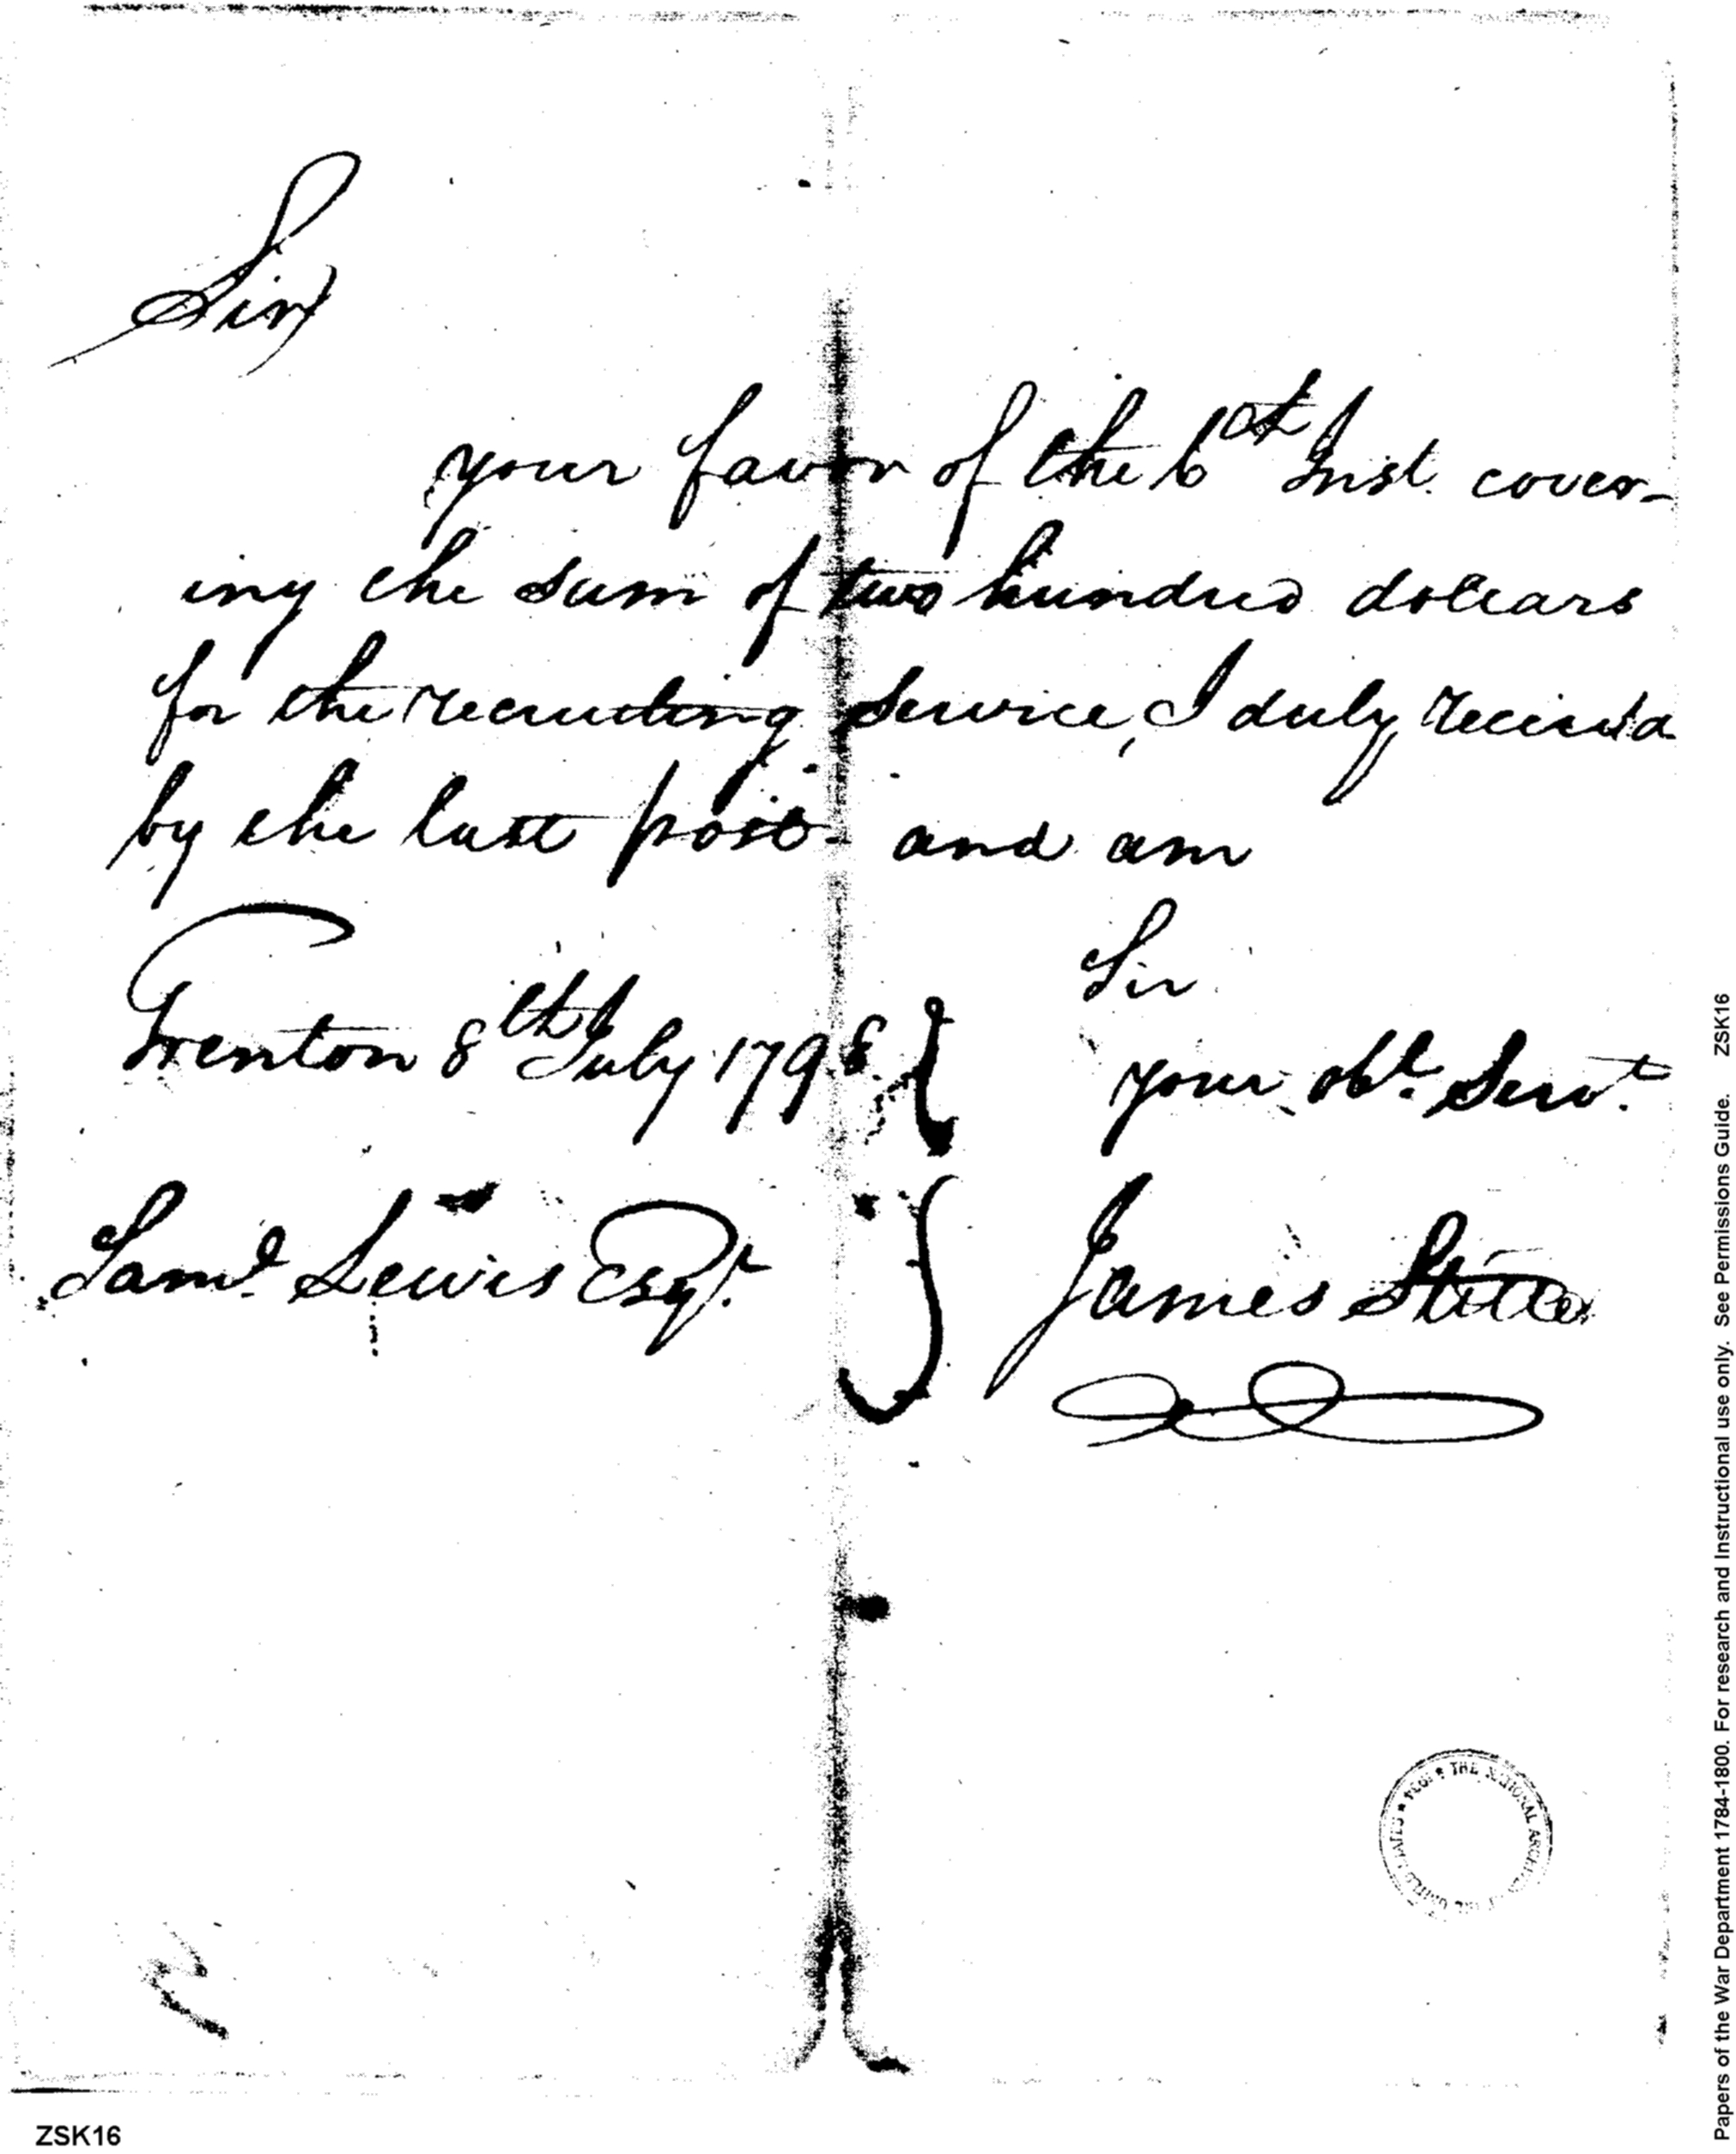 Sir
your favor of the 6th Inst. cover-
ing the sum of two hundred dollars
for the recruiting service, I duly received
by the last post and am
Sir
Trenton 8th July 1798
your obt. Servt.
Saml. Lewis Esqr.
James Stille
THE NATIONAL
ZSK16
Papers of the War Department 1784-1800. For research and Instructional use only. See Permissions Guide. ZSK16